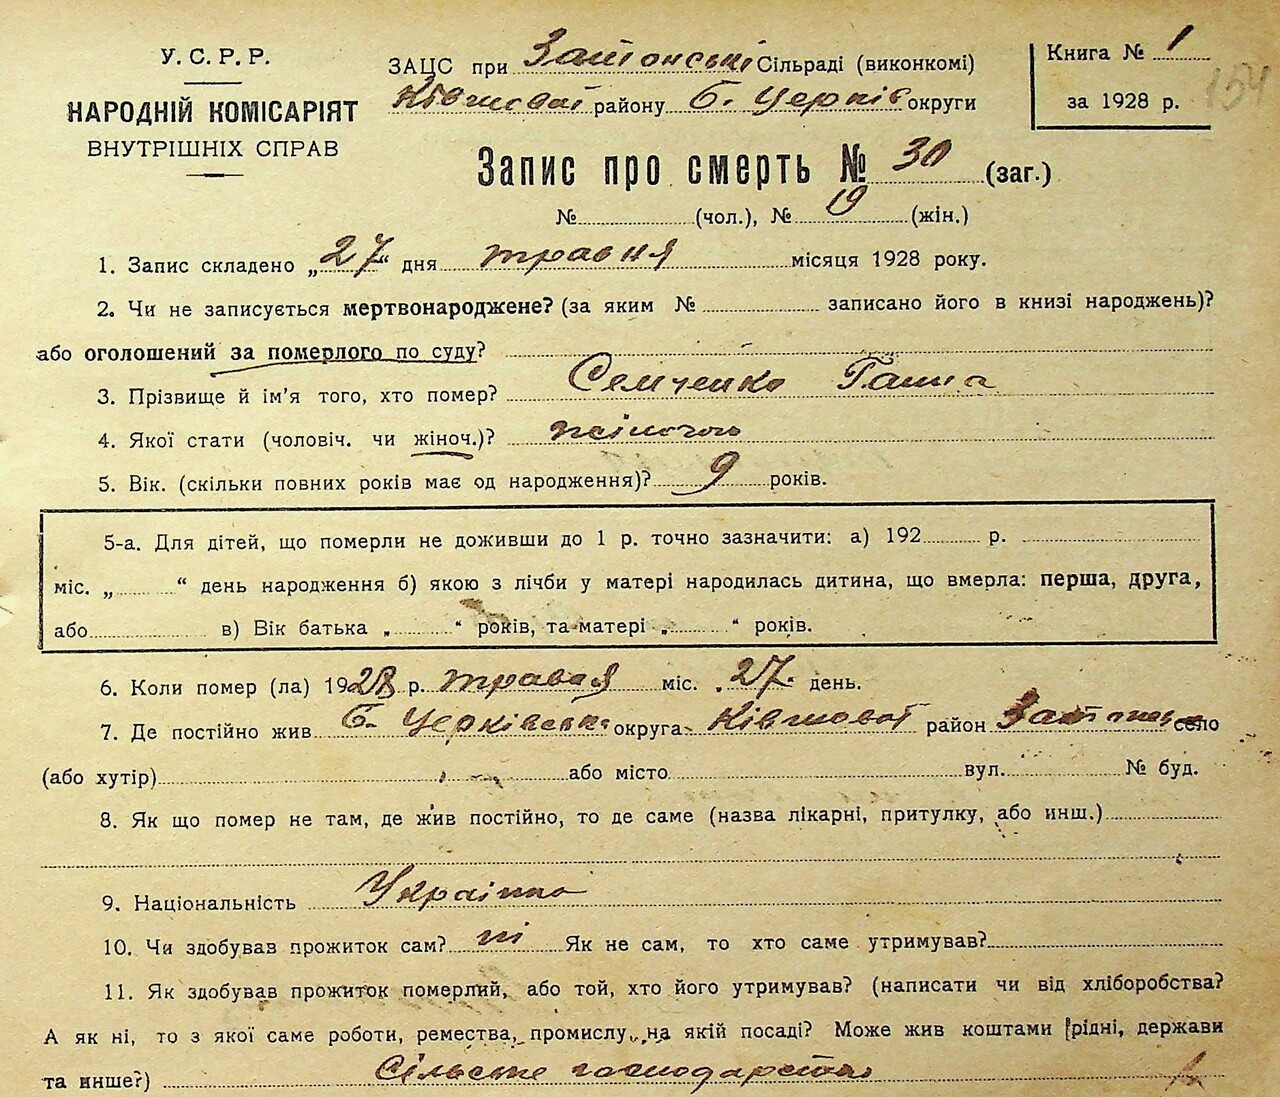 У. С. Р. Р.
НАРОДНІЙ КОМІСАРІЯТ
ВНУТРІШНІХ СПРАВ
ЗАЦС при Затонські Сільраді (виконкомі)
району Б. Церків округи
Книга № 1
за 1928 р.
154
Запис про смерть № 30 (заг.)
№ (чол.), № 19 (жін.)
1. Запис складено „27“ дня травня місяця 1928 року.
2. Чи не записується мертвонароджене? (за яким № записано його в книзі народжень)?
або оголошений за померлого по суду?
3. Прізвище й ім'я того, хто помер? Семченко Ганна
4. Якої стати (чоловіч. чи жіноч.)? жіночою
5. Вік. (скільки повних років має од народження)? 9 років.
5-а. Для дітей, що померли не доживши до 1 р. точно зазначити: а) 192 р.
міс. „ “ день народження б) якою з лічби у матері народилась дитина, що вмерла: перша, друга,
або в) Вік батька „ “ років, та матері „ “ років.
6. Коли помер (ла) 1928 р. травня міс. „27“ день.
7. Де постійно жив Б. Церківська округа район село
(або хутір) або місто вул. № буд.
8. Як що помер не там, де жив постійно, то де саме (назва лікарні, притулку, або инш.)
9. Національність Українка
10. Чи здобував прожиток сам? ні Як не сам, то хто саме утримував?
11. Як здобував прожиток померлий, або той, хто його утримував? (написати чи від хліборобства?
А як ні, то з якої саме роботи, ремества, промислу, на якій посаді? Може жив коштами рідні, держави
та инше?) Сільське господарство